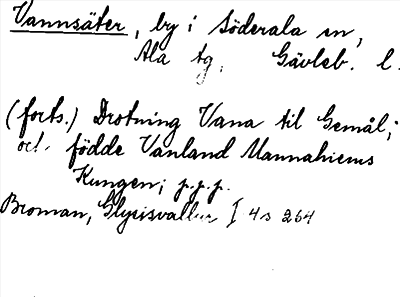 Vannsäter, by i Söderala sn,
Ala tg. Gävleb. l.
(forts.) Drotning Vana til Gemål;
och födde Vanland Mannahiems
Kungen; p.p.p.
Broman, Glysisvallur I 4 s 264